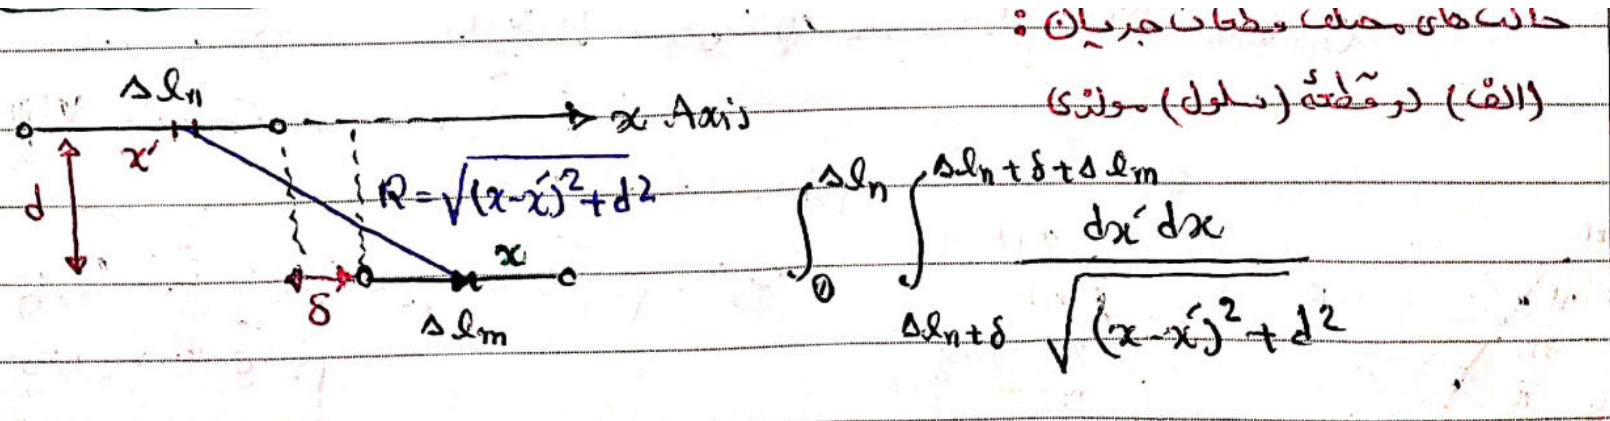 حالت‌های مختلف قطعات جریان :
(الف) دو قطعهٔ (سلول) موازی
Δlₙ
x Axis
x′
d
R=√((x-x′)²+d²)
x
δ
Δlₘ
∫₀^Δlₙ ∫_{Δlₙ+δ}^{Δlₙ+δ+Δlₘ} dx′dx / √((x-x′)²+d²)